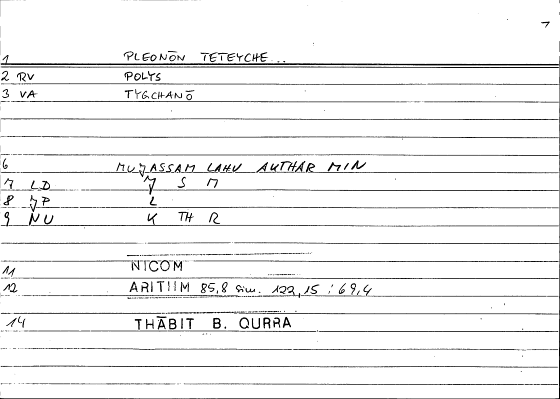 1 PLEONŌN TETEYCHE...
2 RV POLYS
3 VA TYGCHANŌ
6 MUJASSAM LAHU AKTHAR MIN
7 LD J S M
8 JP L
9 NU K TH R
11 NICOM
12 ARITHM 85,8 sim. 122,15 ; 69,4
14 THĀBIT B. QURRA